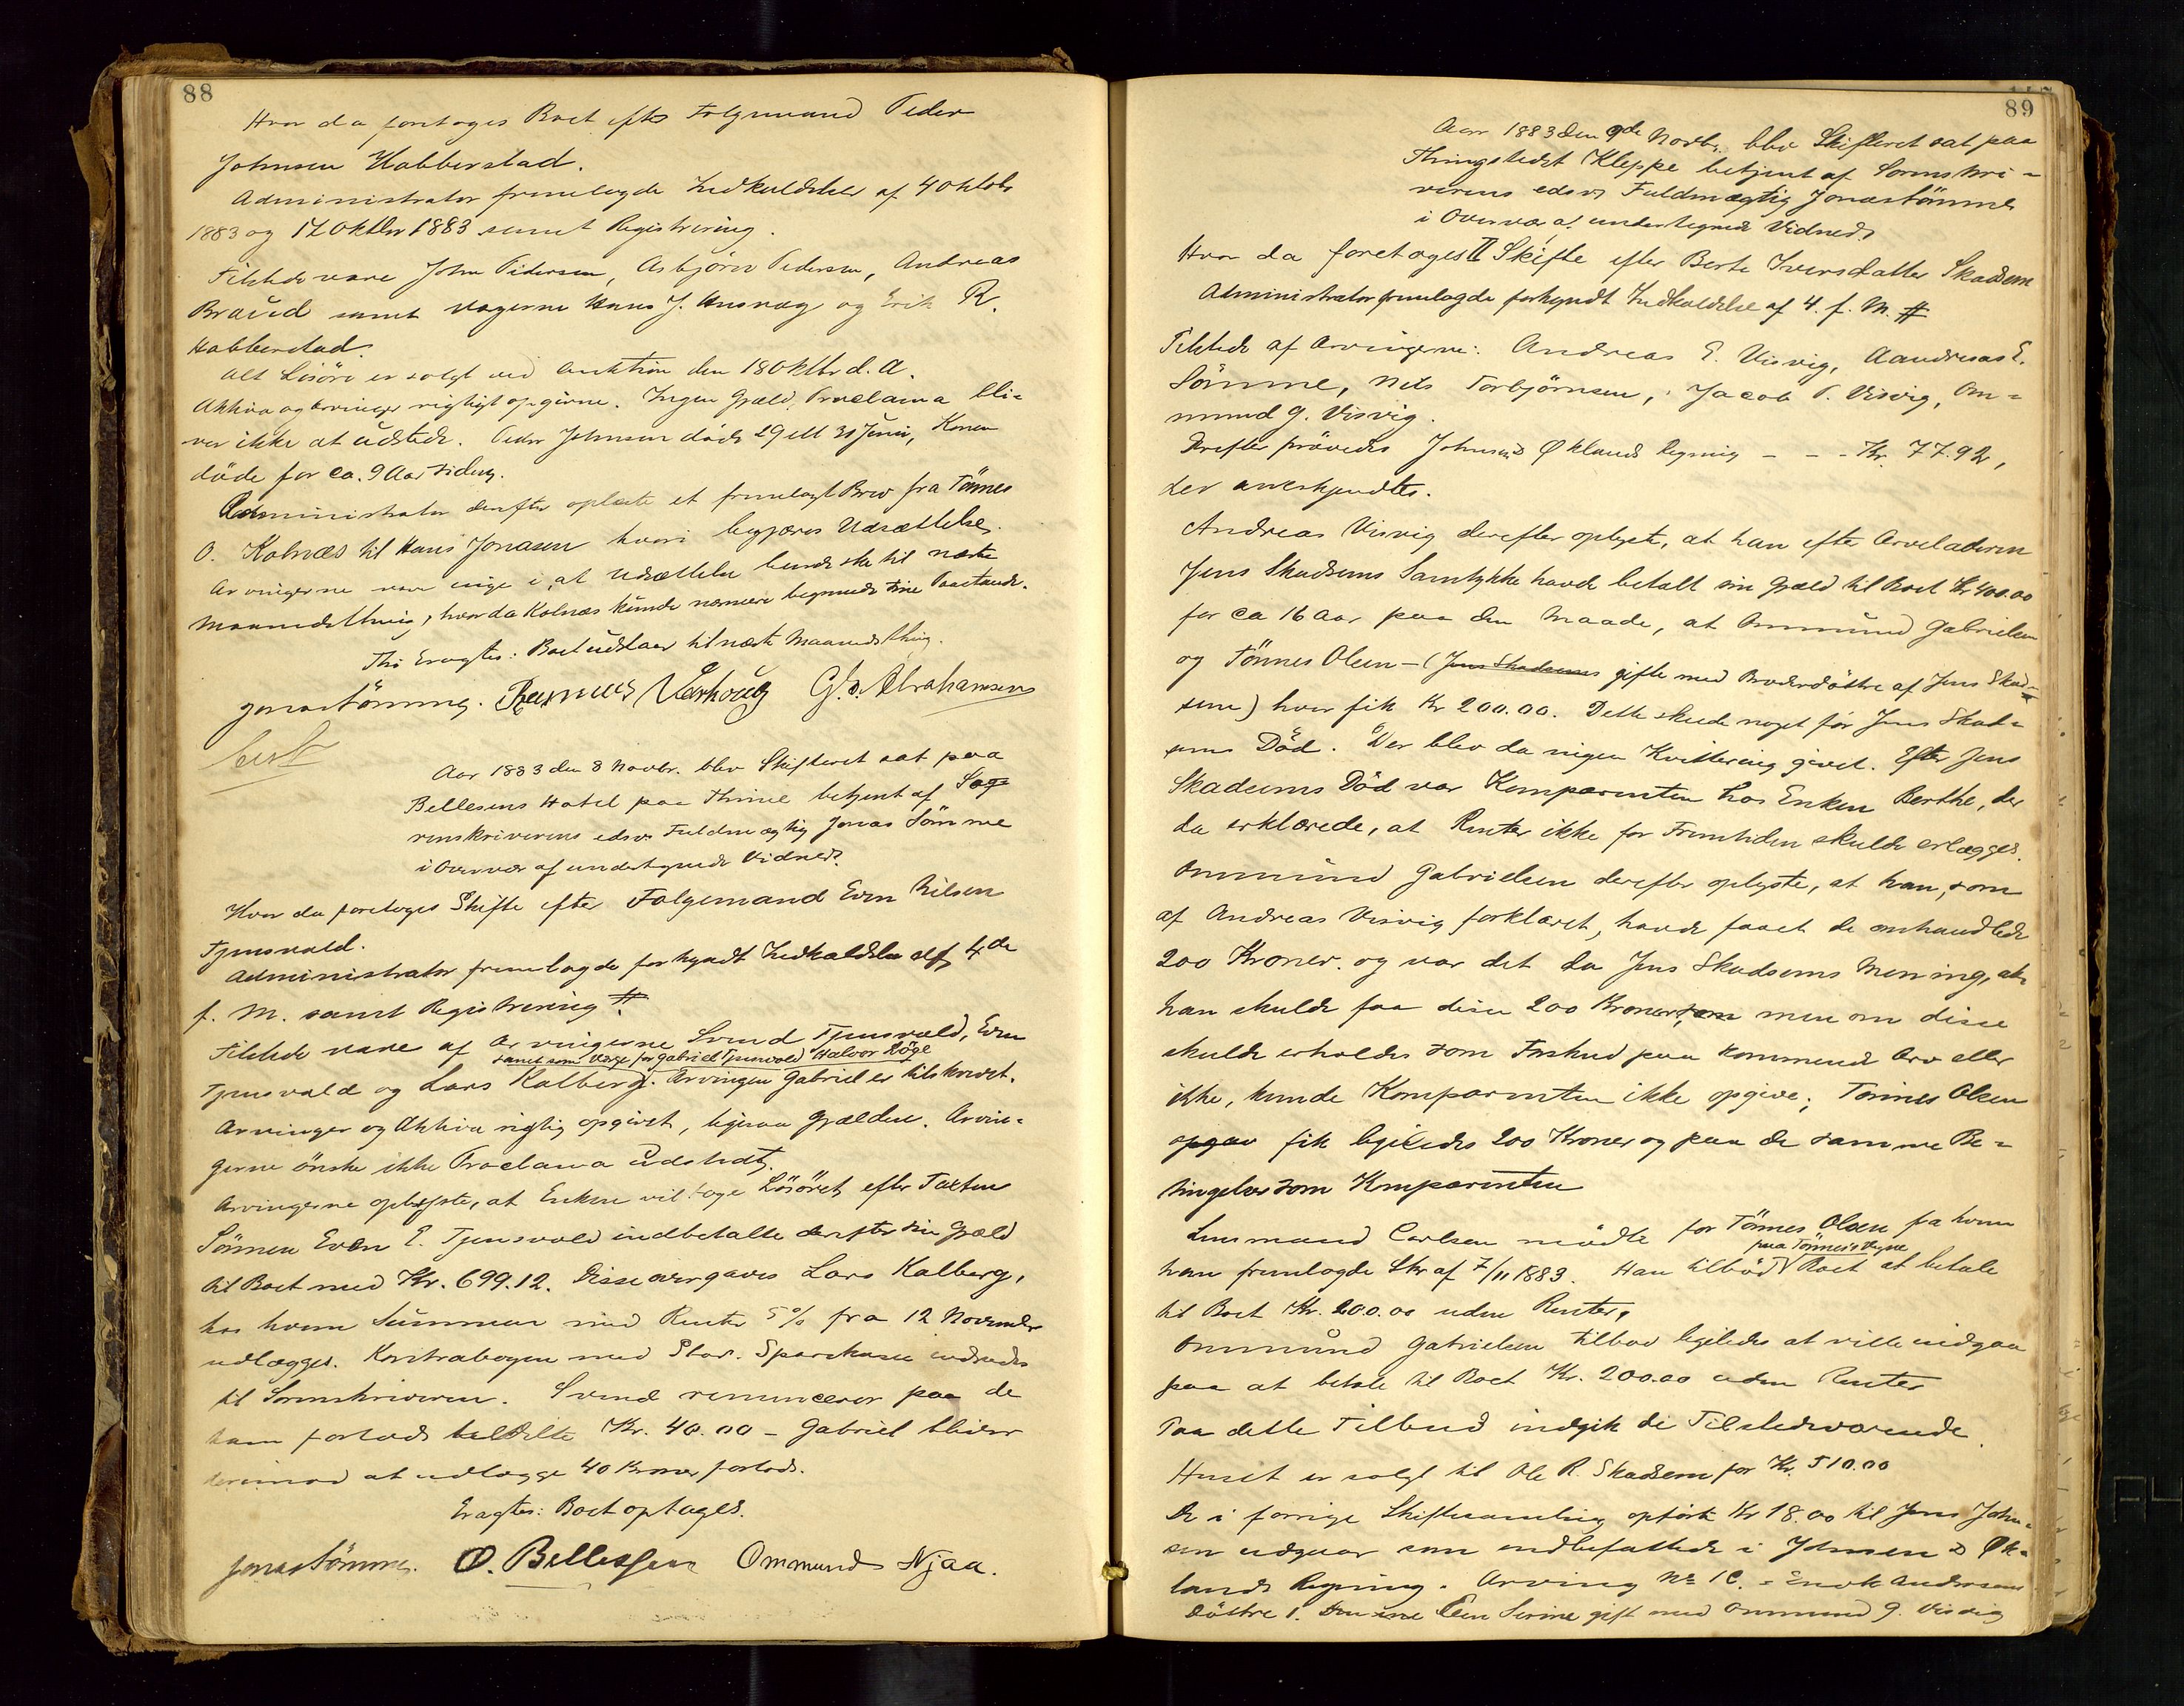 88
Hvor da foretoges Boet efter Folgemand Peder
Johnsen Habberstad.
Administrator fremlagde Indkaldelse af 4 Oktobr
1883 og 12 Oktbr 1883 samt Registrering.
Tilstede vare John Pedersen, Asbjörn Pedersen, Andreas
Braud samt Vægerne Hans J. Aasvæg og Erik R.
Habberstad.
Alt Lösöre er solgt ved Auktion den 18 Oktbr d. A.
Aktiva og Arvinger rigtigt opgivne. Ingen Gjæld, Proclama bli-
ver ikke at udstede. Peder Johnsen döde 29 ell 30 Juni, Konen
döde for ca. 9 Aar siden.
Administrator derefter oplæste et fremlagt Brev fra Tönnes
O. Kolnæs til Hans Jonasen hvori begjæres Udsættelse.
Arvingerne vare enige i, at Udsættelse kunde ske til næste
Maanedsthing, hvor da Kolnæs kunde nærmere begrunde sine Paastande.
Thi Eragtes: Boet udstaar til næste Maanedsthing.
Jonas Sömme. Rasmus Værhoug G. Abrahamsen
Aar 1883 den 8 Novbr. blev Skifteret sat paa
Bellesens Hotel paa Thime betjent af So
renskriverens edsv. Fuldmægtig Jonas Sömme
i Overvær af undertegnede Vidner.
Hvor da foretoges Skifte efter Folgemand Even Nilsen
Tjensvold.
Administrator fremlagde forkyndt Indkaldelse af 4de
f. M. samt Registrering #.
Tilstede vare af Arvingerne Svend Tjensvold, Even
samt som Værge for Gabriel Tjensvold Halvor Löge
Tjensvold og Lars Kalberg. Arvingen Gabriel er tilskrevet.
Arvinger og Aktiva rigtig opgivet, ligesaa Gjælden. Arvin-
gerne önske ikke Proclama udstedt.
Arvingerne oplyste, at Enken vil tage Lösöret efter Taxten
Sönnen Even E. Tjensvold indbetalte derefter sin Gjæld
til Boet med Kr. 699.12. Disse overgaves Lars Kalberg,
hos hvem Summen med Rente 5% fra 12 November
udlægges. Kontrabogen med Stav. Sparekasse indsendes
til Sorenskriveren. Svend renuncerer paa de
ham forlods tildelte Kr. 40.00 - Gabriel bliver
derimod at udlægge 40 Kroner forlods.
Eragtes: Boet optages.
Jonas Sömme. O. Bellessen Ommund Njaa.
89
Aar 1883 den 9de Novbr. blev Skifteret sat paa
Thingstedet Kleppe betjent af Sorenskri-
verens edsv. Fuldmægtig Jonas Sömme
i Overvær af undertegnede Vidner.
Hvor da foretoges II Skifte efter Berte Iversdatter Skadsem
Administrator fremlagde forkyndt Indkaldelse af 4. f. M. #
Tilstede af Arvingerne: Andreas E. Visvig, Aandreas E.
Sömme, Nils Torbjörnsen, Jacob P. Visvig, Om-
mund G. Visvig.
Derefter prövedes Johnsen & Öklands Regning - - - Kr. 77.92,
der anerkjendtes.
Andreas Visvig derefter oplyste, at han efter Arveladeren
Jens Skadsems Samtykke havde betalt sin Gjæld til Boet Kr 400.00
for ca 16 Aar paa den Maade, at Ommund Gabrielsen
og Tönnes Olsen - (Jens Skadsems gifte med Broderdöttre af Jens Skad-
sem) hver fik Kr 200.00. Dette skede noget för Jens Skad-
sems Död. Der blev da ingen Kvittering givet. Efter Jens
Skadsems Död var Komparenten hos Enken Berthe, der
da erklærede, at Renter ikke for Fremtiden skulde erlægges.
Ommund Gabrielsen derefter oplyste, at han, som
af Andreas Visvig forklaret, havde faaet de omhandlede
200 Kroner. og var det da Jens Skadsems Mening, at
han skulde faa disse 200 Kroner, som men om disse
skulde erholdes som Forskud paa kommende Arv eller
ikke, kunde Komparenten ikke opgive; Tönnes Olsen
opgav fik ligeledes 200 Kroner og paa de samme Be-
tingelser som Komparenten
Lensmand Carlsen mödte for Tönnes Olsen fra hvem
paa Tönnes's Vegne
han fremlagde Skr af 7/11 1883. Han tilböd Boet at betale
til Boet Kr. 200.00 uden Renter,
Ommund Gabrielsen tilböd ligeledes at ville indgaa
paa at betale til Boet Kr. 200.00 uden Renter
Paa dette Tilbud indgik de Tilstedeværende
Huset er solgt til Ole R. Skadsem for Kr. 510.00
De i forrige Skiftesamling opförte Kr 18.00 til Jens John-
sen udgaar som indbefattede i Johnsen & Ök-
lands Regning. Arving No 1 C. = Enok Andersens
Döttre 1. Den ene Elen Serine gift med Ommund G. Visvig